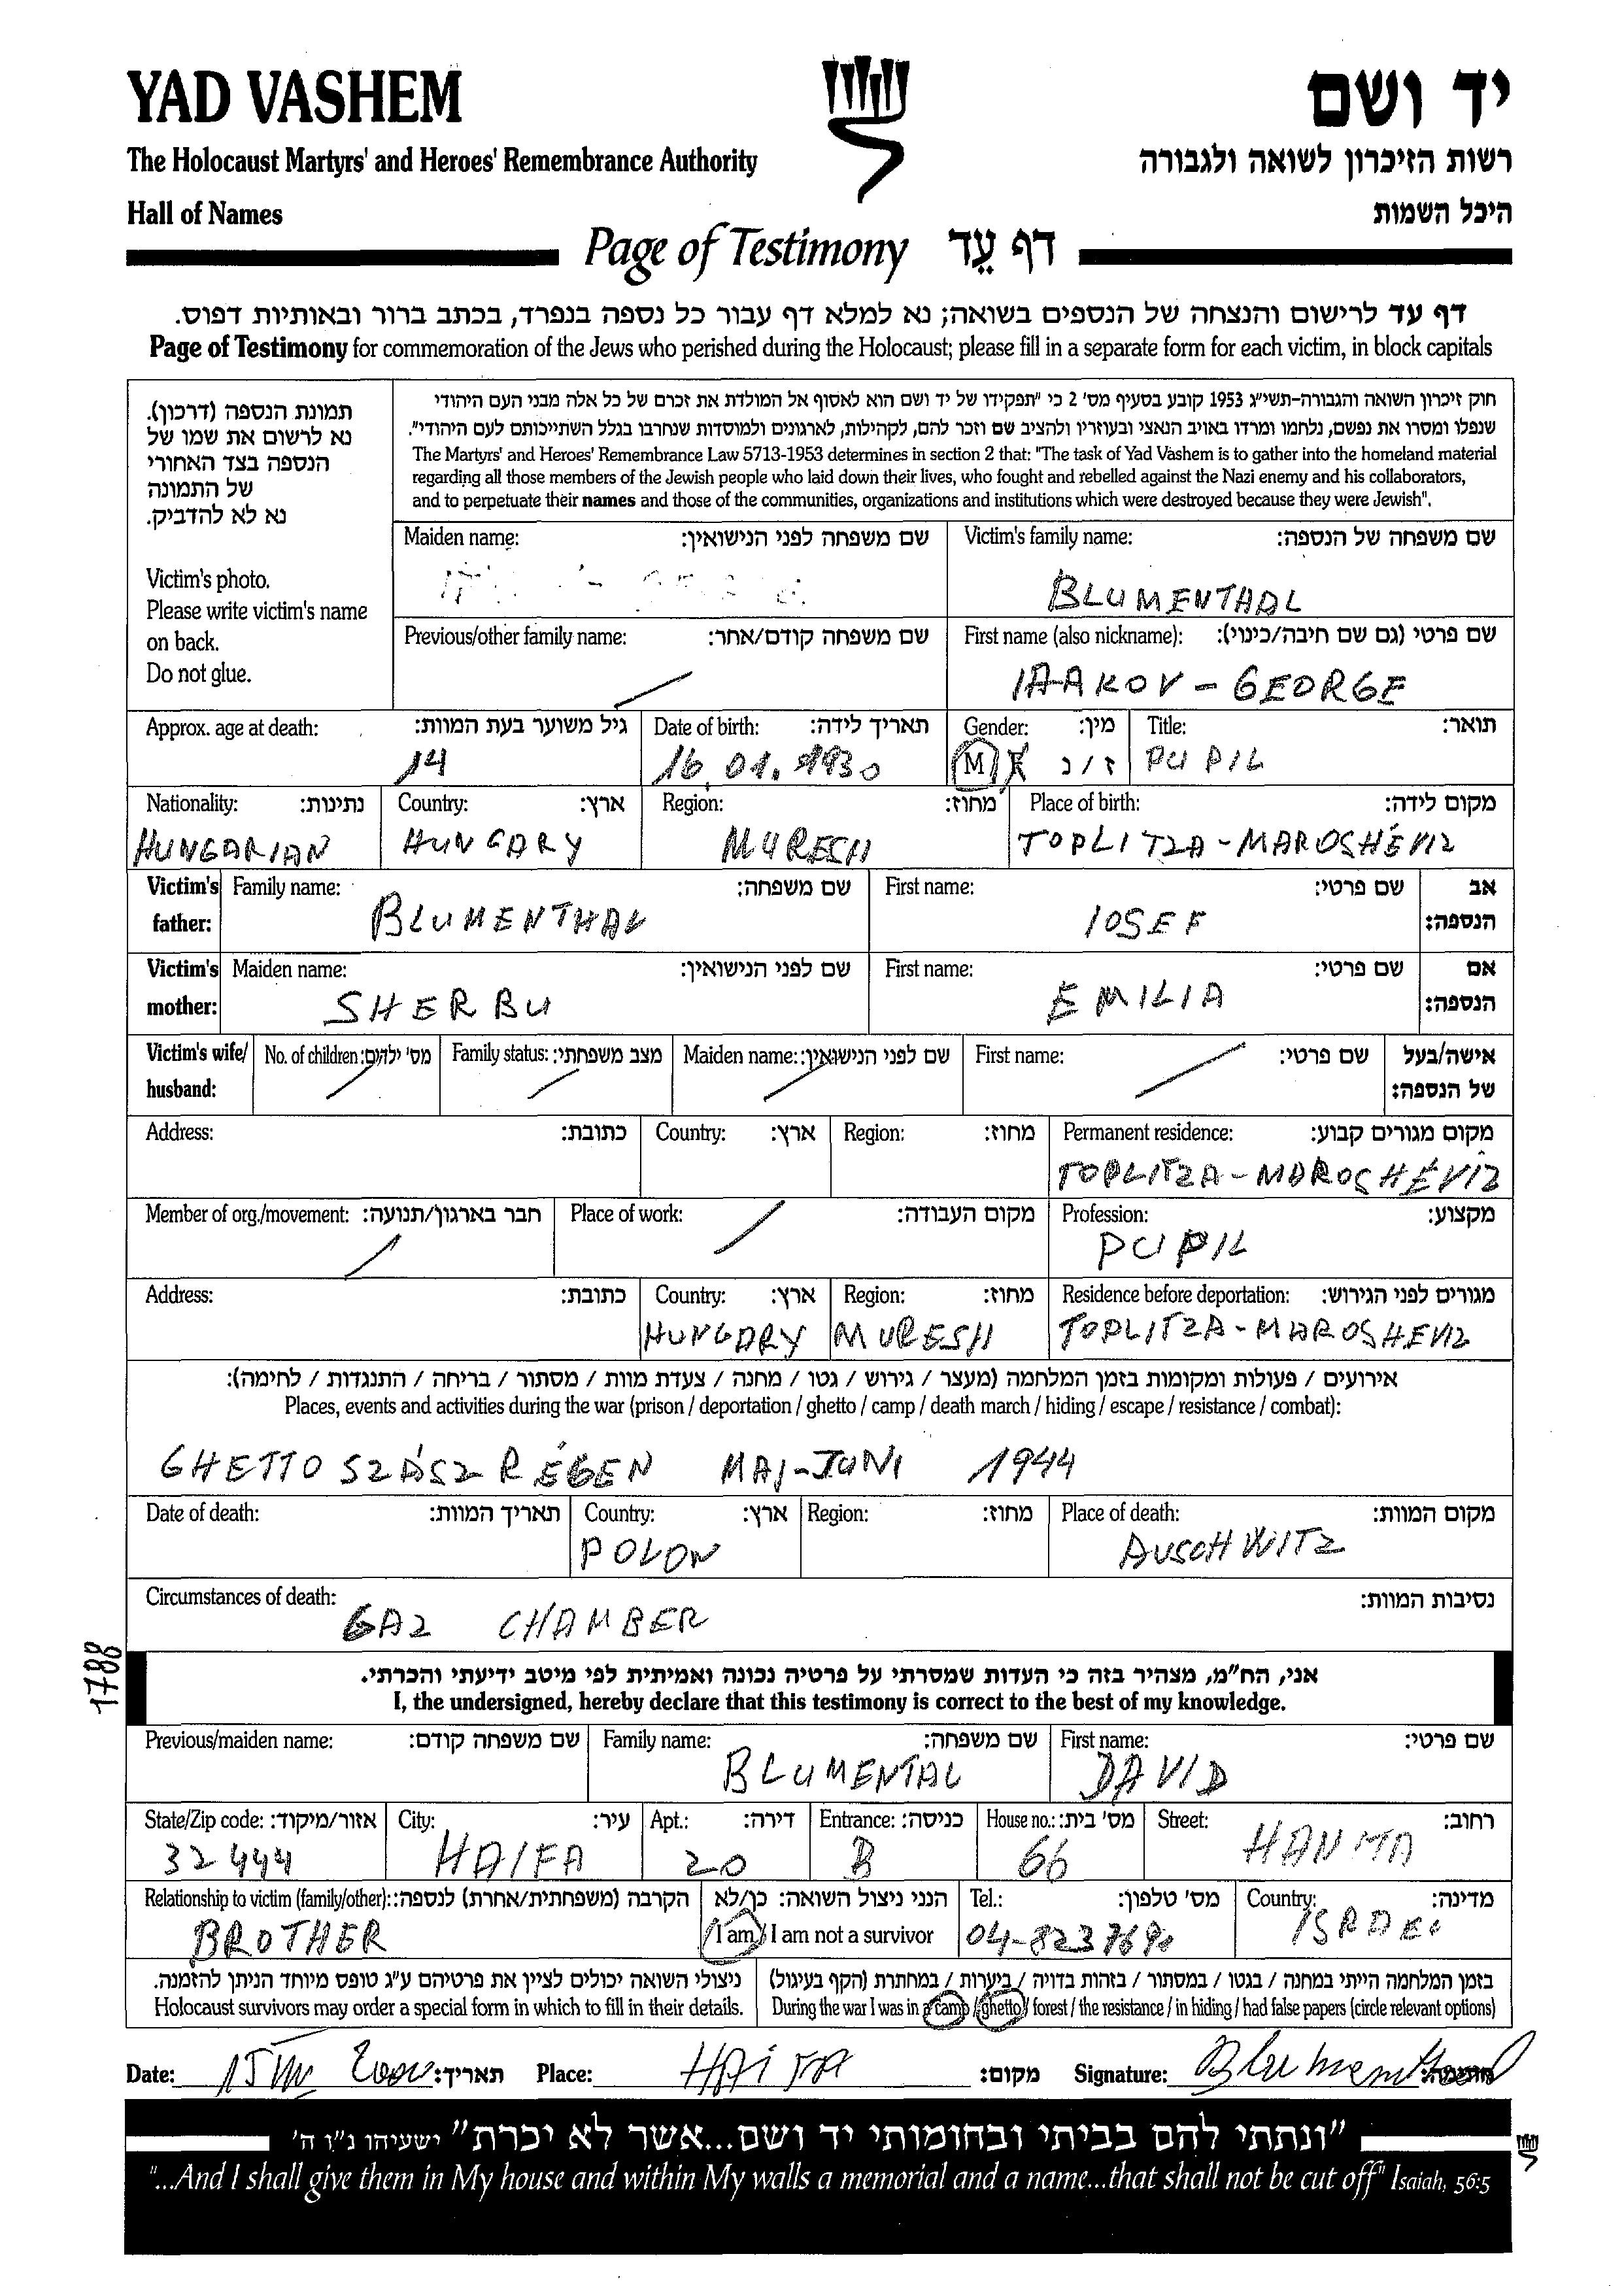 YAD VASHEM
יד ושם
The Holocaust Martyrs' and Heroes' Remembrance Authority
רשות הזיכרון לשואה ולגבורה
Hall of Names
היכל השמות
Page of Testimony דף עֵד
דף עד לרישום והנצחה של הנספים בשואה; נא למלא דף עבור כל נספה בנפרד, בכתב ברור ובאותיות דפוס.
Page of Testimony for commemoration of the Jews who perished during the Holocaust; please fill in a separate form for each victim, in block capitals
תמונת הנספה (דרכון).
נא לרשום את שמו של
הנספה בצד האחורי
של התמונה
נא לא להדביק.
Victim's photo.
Please write victim's name
on back.
Do not glue.
חוק זיכרון השואה והגבורה-תשי״ג 1953 קובע בסעיף מס׳ 2 כי ״תפקידו של יד ושם הוא לאסוף אל המולדת את זכרם של כל אלה מבני העם היהודי
שנפלו ומסרו את נפשם, נלחמו ומרדו באויב הנאצי ובעוזריו ולהציב שם וזכר להם, לקהילות, לארגונים ולמוסדות שנחרבו בגלל השתייכותם לעם היהודי״.
The Martyrs' and Heroes' Remembrance Law 5713-1953 determines in section 2 that: "The task of Yad Vashem is to gather into the homeland material
regarding all those members of the Jewish people who laid down their lives, who fought and rebelled against the Nazi enemy and his collaborators,
and to perpetuate their names and those of the communities, organizations and institutions which were destroyed because they were Jewish".
Maiden name: שם משפחה לפני הנישואין: Victim's family name: שם משפחה של הנספה:
BLUMENTHAL
Previous/other family name: שם משפחה קודם/אחר: First name (also nickname): שם פרטי (גם שם חיבה/כינוי):
IAAKOV - GEORGE
Approx. age at death: גיל משוער בעת המוות: Date of birth: תאריך לידה: Gender: מין: Title: תואר:
14 16.01.1930 M/F ז/נ PUPIL
Nationality: נתינות: Country: ארץ: Region: מחוז: Place of birth: מקום לידה:
HUNGARIAN HUNGARY MURESH TOPLITZA - MAROSHÉVIZ
Victim's father: Family name: שם משפחה: First name: שם פרטי: אב הנספה:
BLUMENTHAL IOSEF
Victim's mother: Maiden name: שם לפני הנישואין: First name: שם פרטי: אם הנספה:
SHERBU EMILIA
Victim's wife/ husband: No. of children: מס׳ ילדים: Family status: מצב משפחתי: Maiden name: שם לפני הנישואין: First name: שם פרטי: אישה/בעל של הנספה:
Address: כתובת: Country: ארץ: Region: מחוז: Permanent residence: מקום מגורים קבוע:
TOPLITZA - MAROSHÉVIZ
Member of org./movement: חבר בארגון/תנועה: Place of work: מקום העבודה: Profession: מקצוע:
PUPIL
Address: כתובת: Country: ארץ: Region: מחוז: Residence before deportation: מגורים לפני הגירוש:
HUNGARY MURESH TOPLITZA - MAROSHEVIZ
אירועים / פעולות ומקומות בזמן המלחמה (מעצר / גירוש / גטו / מחנה / צעדת מוות / מסתור / בריחה / התנגדות / לחימה):
Places, events and activities during the war (prison / deportation / ghetto / camp / death march / hiding / escape / resistance / combat):
GHETTO SZÁSZ RÉGEN MAJ-JUNI 1944
Date of death: תאריך המוות: Country: ארץ: Region: מחוז: Place of death: מקום המוות:
POLON AUSCHWITZ
Circumstances of death: נסיבות המוות:
GAZ CHAMBER
1788
אני, הח״מ, מצהיר בזה כי העדות שמסרתי על פרטיה נכונה ואמיתית לפי מיטב ידיעתי והכרתי.
I, the undersigned, hereby declare that this testimony is correct to the best of my knowledge.
Previous/maiden name: שם משפחה קודם: Family name: שם משפחה: First name: שם פרטי:
BLUMENTAL DAVID
State/Zip code: אזור/מיקוד: City: עיר: Apt.: דירה: Entrance: כניסה: House no.: מס׳ בית: Street: רחוב:
32444 HAIFA 20 B 66 HANITA
Relationship to victim (family/other): הקרבה (משפחתית/אחרת) לנספה: הנני ניצול השואה: כן/לא Tel.: מס׳ טלפון: Country: מדינה:
BROTHER I am / I am not a survivor 04-8237690 ISRAEL
ניצולי השואה יכולים לציין את פרטיהם ע״ג טופס מיוחד הניתן להזמנה.
Holocaust survivors may order a special form in which to fill in their details.
בזמן המלחמה הייתי במחנה / בגטו / במסתור / בזהות בדויה / ביערות / במחתרת (הקף בעיגול)
During the war I was in a camp / ghetto / forest / the resistance / in hiding / had false papers (circle relevant options)
Date: תאריך: Place: HAIFA מקום: Signature: Blumenthal חתימה:
״ונתתי להם בביתי ובחומותי יד ושם...אשר לא יכרת״ ישעיהו נ״ו ה׳
"...And I shall give them in My house and within My walls a memorial and a name...that shall not be cut off" Isaiah, 56:5